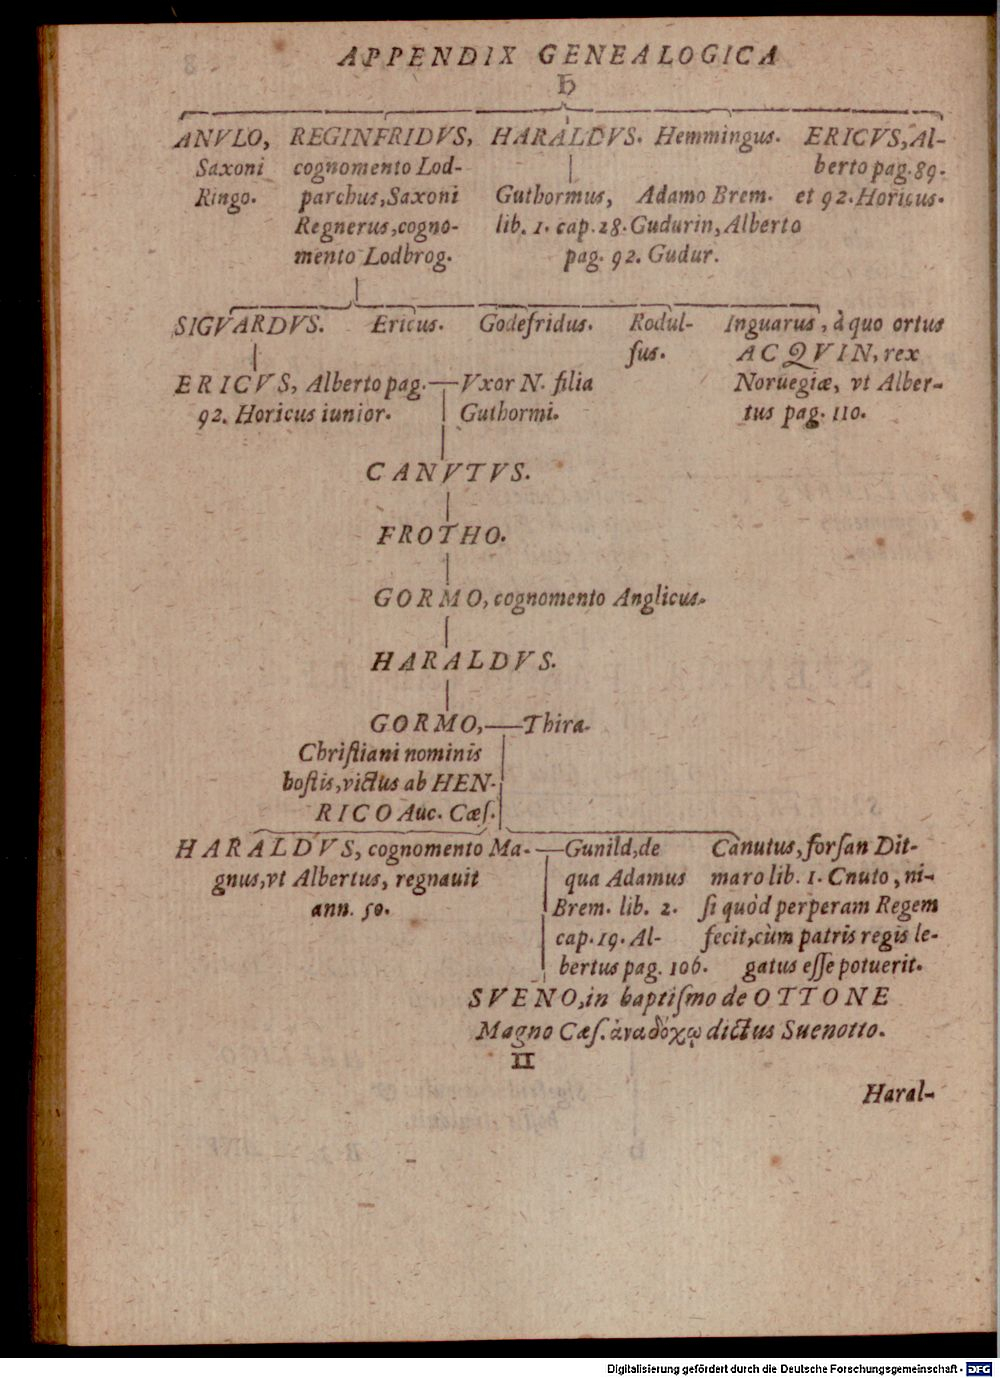 APPENDIX GENEALOGICA
ANVLO, REGINFRIDVS, HARALDVS. Hemmingus. ERICVS, Al-
Saxoni cognomento Lod- berto pag. 89.
Ringo. parchus, Saxoni Guthormus, Adamo Brem. et 92. Horicus.
Regnerus, cogno- lib. 1. cap. 28. Gudurin, Alberto
mento Lodbrog. pag. 92. Gudur.
SIGVARDVS. Ericus. Godefridus. Rodul- Inguarus, à quo ortus
fus. ACQVIN, rex
ERICVS, Alberto pag. — Vxor N. filia Noruegiæ, vt Alber-
92. Horicus iunior. Guthormi. tus pag. 110.
CANVTVS.
FROTHO.
GORMO, cognomento Anglicus.
HARALDVS.
GORMO, — Thira.
Chriſtiani nominis
hoſtis, victus ab HEN-
RICO Auc. Cæſ.
HARALDVS, cognomento Ma- — Gunild, de Canutus, forſan Dit-
gnus, vt Albertus, regnauit qua Adamus maro lib. 1. Cnuto, ni-
ann. 50. Brem. lib. 2. ſi quòd perperam Regem
cap. 19. Al- fecit, cùm patris regis le-
bertus pag. 106. gatus eſſe potuerit.
SVENO, in baptiſmo de OTTONE
Magno Cæſ. ἀναδόχῳ dictus Suenotto.
II
Haral-
Digitalisierung gefördert durch die Deutsche Forschungsgemeinschaft - DFG